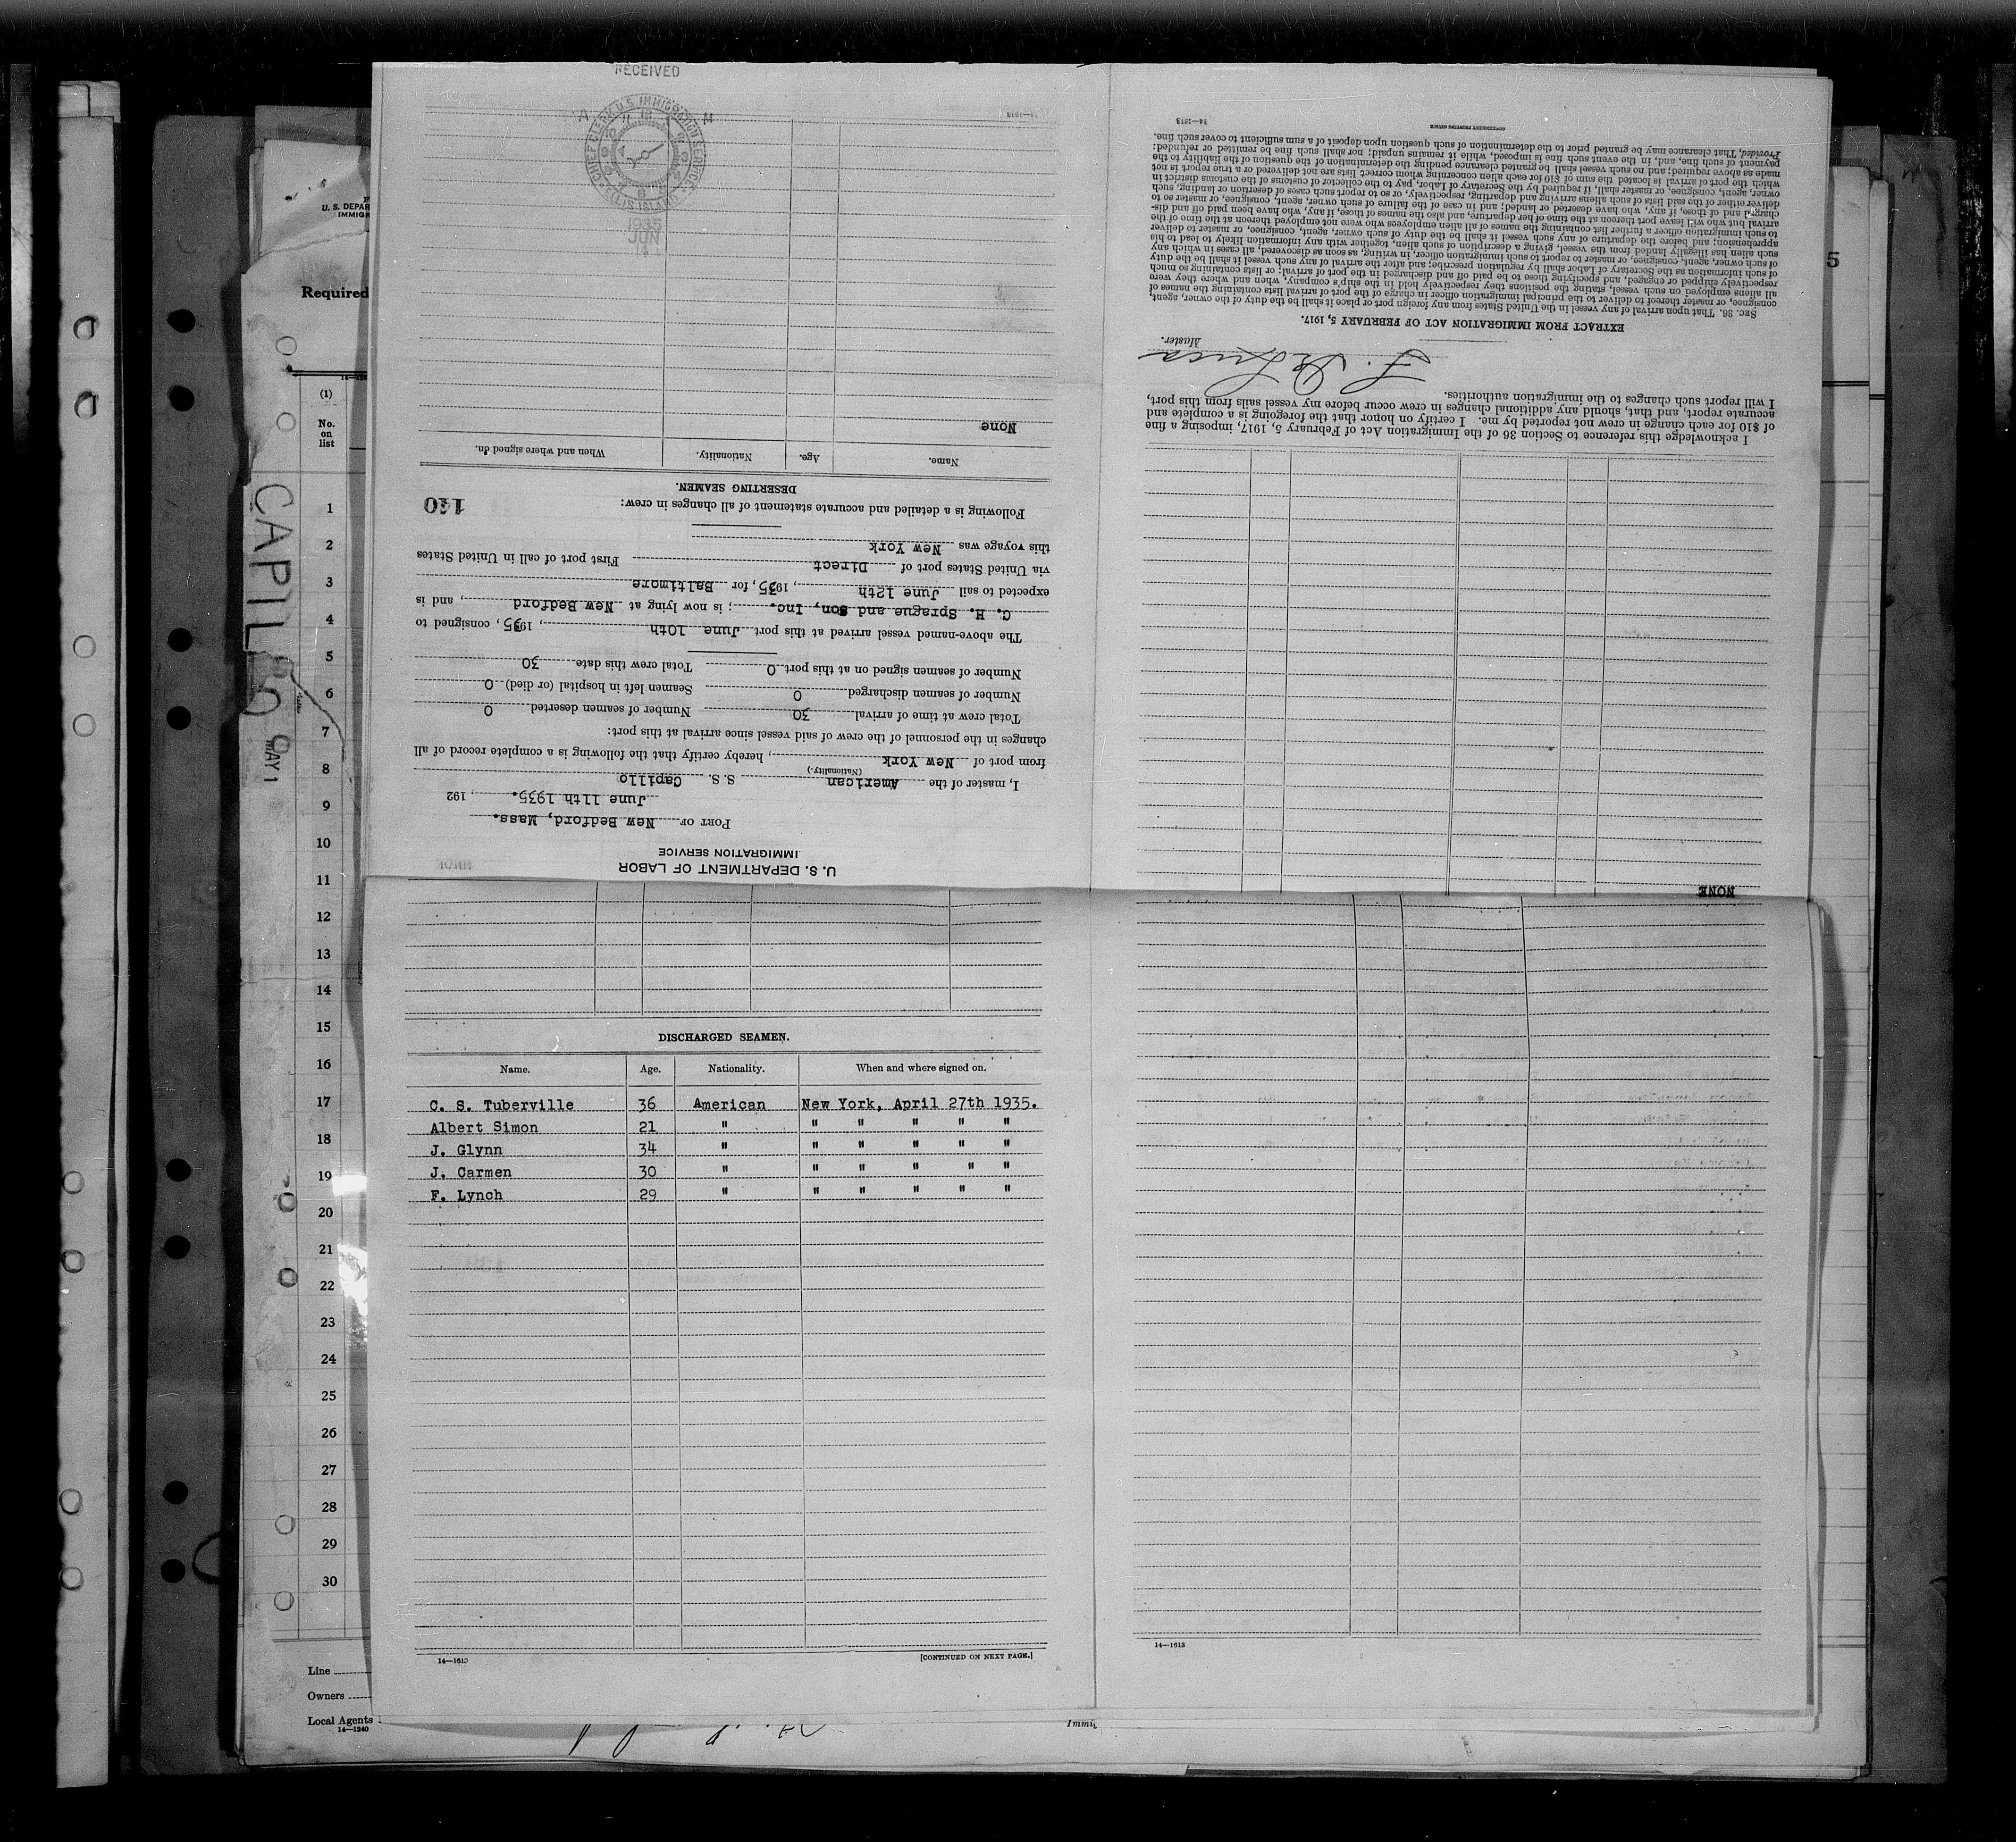 RECEIVED
CHIEF CLERK U.S. IMMIGRATION SERVICE
ELLIS ISLAND
1935
JUN
14
U. S. DEPAR
IMMIGR
Required
(1)
No.
on
list
1
2
3
4
5
6
7
8
9
10
11
12
13
14
15
16
17
18
19
20
21
22
23
24
25
26
27
28
29
30
CAPILLO
MAY 1
Line
Owners
Local Agents
14—1240
5
U. S. DEPARTMENT OF LABOR
IMMIGRATION SERVICE
PORT OF New Bedford, Mass.
June 11th 1935. , 192
I, master of the American S. S. Capillo
(Nationality.)
from port of New York , hereby certify that the following is a complete record of all
changes in the personnel of the crew of said vessel since arrival at this port:
Total crew at time of arrival 30 Number of seamen deserted 0
Number of seamen discharged 0 Seamen left in hospital (or died) 0
Number of seamen signed on at this port 0 Total crew this date 30
The above-named vessel arrived at this port June 10th , 1935, consigned to
C. H. Sprague and son, Inc. ; is now lying at New Bedford , and is
expected to sail June 12th , 1935, for Baltimore
via United States port of Direct First port of call in United States
this voyage was New York
Following is a detailed and accurate statement of all changes in crew:
140
DESERTING SEAMEN.
Name. Age. Nationality. When and where signed on.
None
14—1613
NONE
I acknowledge this reference to Section 36 of the Immigration Act of February 5, 1917, imposing a fine
of $10 for each change in crew not reported by me. I certify on honor that the foregoing is a complete and
accurate report, and that, should any additional changes in crew occur before my vessel sails from this port,
I will report such changes to the immigration authorities.
Master.
EXTRACT FROM IMMIGRATION ACT OF FEBRUARY 5, 1917.
Sec. 36. That upon arrival of any vessel in the United States from any foreign port or place it shall be the duty of the owner, agent,
consignee, or master thereof to deliver to the principal immigration officer in charge of the port of arrival lists containing the names of
all aliens employed on such vessel, stating the positions they respectively hold in the ship's company, when and where they were
respectively shipped or engaged, and specifying those to be paid off and discharged in the port of arrival; or lists containing so much
of such information as the Secretary of Labor shall by regulation prescribe; and after the arrival of any such vessel it shall be the duty
of such owner, agent, consignee, or master to report to such immigration officer, in writing, as soon as discovered, all cases in which any
such alien has illegally landed from the vessel, giving a description of such alien, together with any information likely to lead to his
apprehension; and before the departure of any such vessel it shall be the duty of such owner, agent, consignee, or master to deliver
to such immigration officer a further list containing the names of all alien employees who were not employed thereon at the time of the
arrival but who will leave port thereon at the time of her departure, and also the names of those, if any, who have been paid off and dis-
charged and of those, if any, who have deserted or landed; and in case of the failure of such owner, agent, consignee, or master so to
deliver either of the said lists of such aliens arriving and departing, respectively, or so to report such cases of desertion or landing, such
owner, agent, consignee, or master shall, if required by the Secretary of Labor, pay to the collector of customs of the customs district in
which the port of arrival is located the sum of $10 for each alien concerning whom correct lists are not delivered or a true report is not
made as above required; and no such vessel shall be granted clearance pending the determination of the question of the liability to the
payment of such fine, and, in the event such fine is imposed, while it remains unpaid; nor shall such fine be remitted or refunded:
Provided, That clearance may be granted prior to the determination of such question upon deposit of a sum sufficient to cover such fine.
14—1613 GOVERNMENT PRINTING OFFICE
DISCHARGED SEAMEN.
Name. Age. Nationality. When and where signed on.
C. S. Tuberville 36 American New York, April 27th 1935.
Albert Simon 21 " " " " " "
J. Glynn 34 " " " " " "
J. Carmen 30 " " " " " "
F. Lynch 29 " " " " " "
14—1613 [CONTINUED ON NEXT PAGE.]
14—1613
Immi